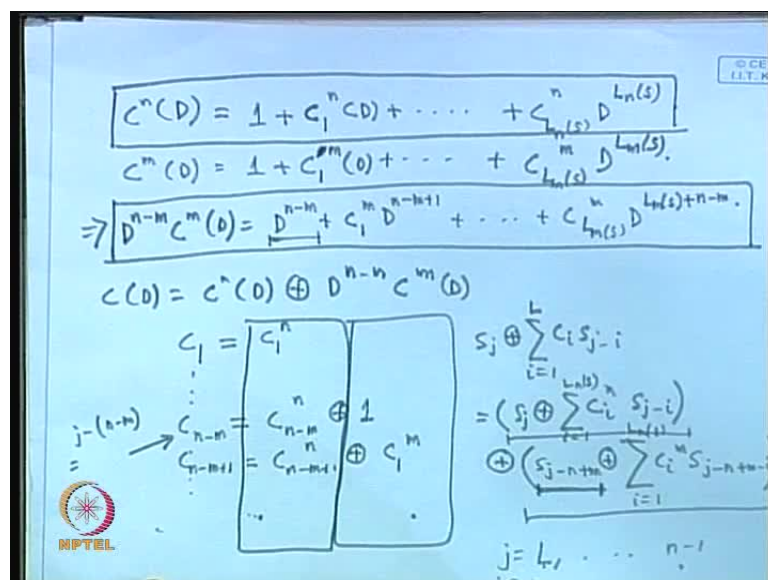 © CE
I.I.T. K
C^n(D) = 1 + C_1^n(D) + ···· + C_{L_n(s)}^n D^{L_n(s)}
C^m(D) = 1 + C_1^m(D) + ··· + C_{L_m(s)}^m D^{L_m(s)}.
⇒ D^{n-m} C^m(D) = D^{n-m} + C_1^m D^{n-m+1} + ··· + C_{L_m(s)}^m D^{L_m(s)+n-m}.
C(D) = C^n(D) ⊕ D^{n-m} C^m(D)
C_1 = C_1^n
⋮
j-(n-m)
=
C_{n-m} = C_{n-m}^n ⊕ 1
C_{n-m+1} = C_{n-m+1}^n ⊕ C_1^m
⋮
...
S_j ⊕ \sum_{i=1}^{L} C_i S_{j-i}
= (S_j ⊕ \sum_{i=1}^{L_n(s)} C_i^n S_{j-i})
⊕ (S_{j-n+m} ⊕ \sum_{i=1} C_i^m S_{j-n+m-i}
j = L, · ·· n-1
NPTEL